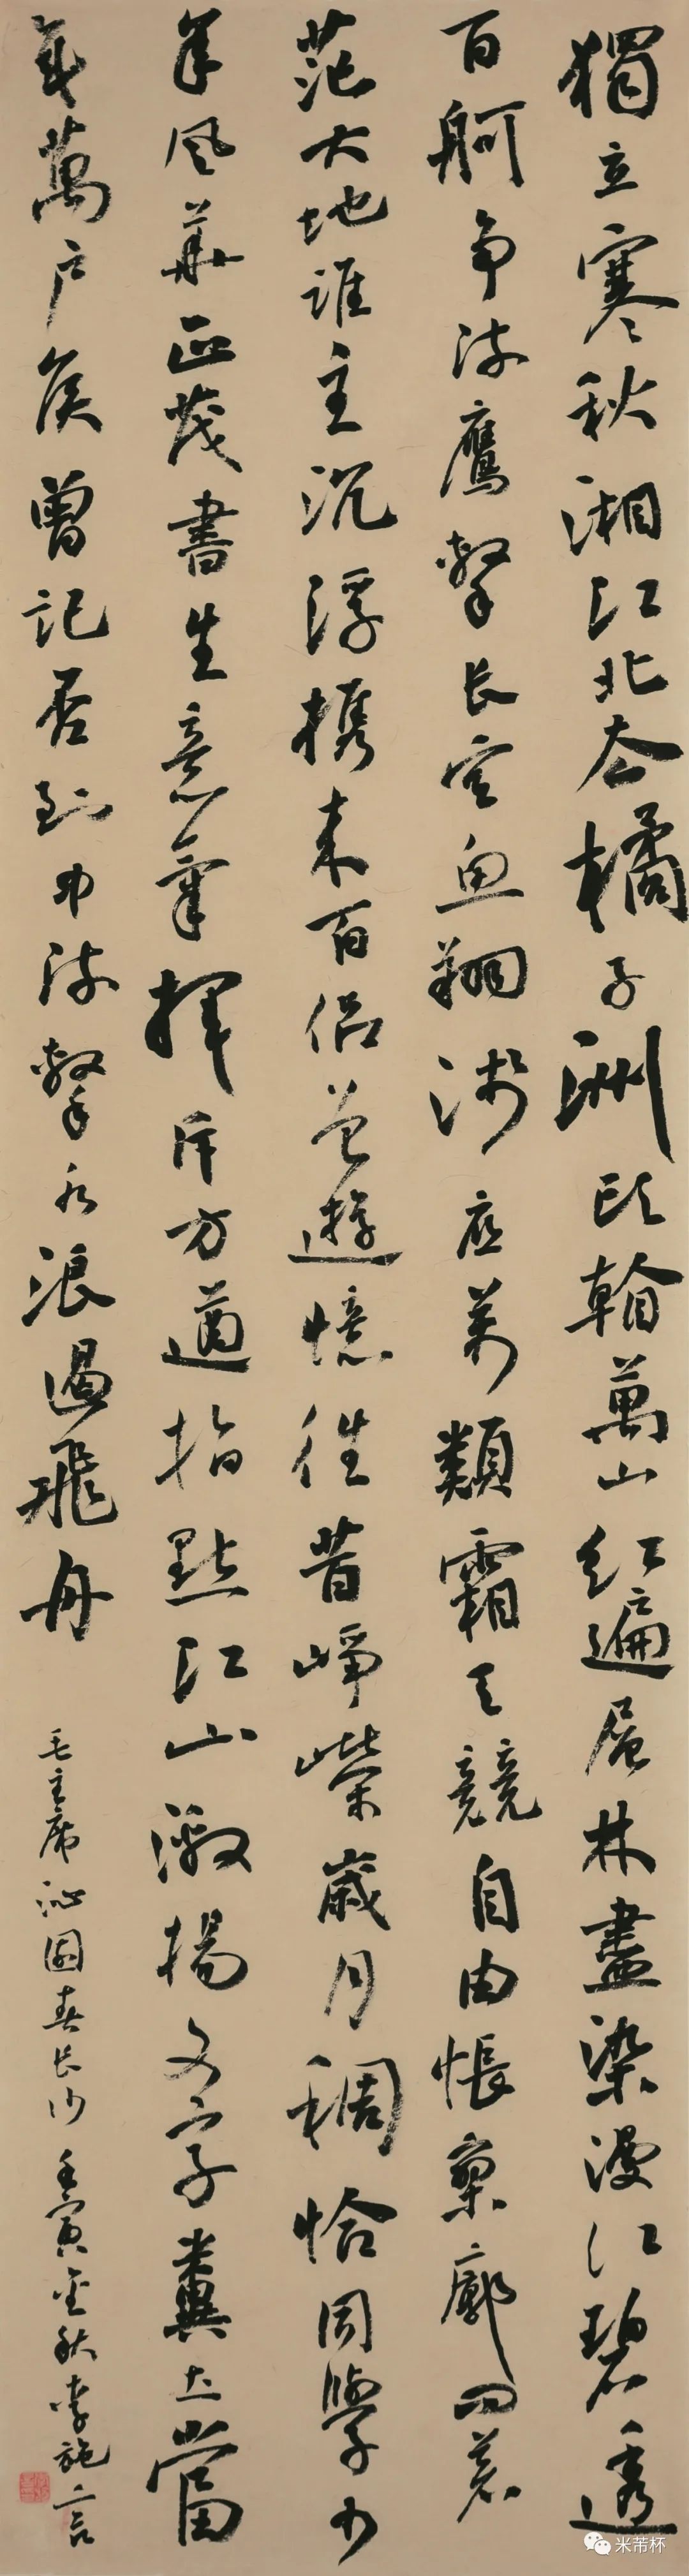 獨立寒秋湘江北去橘子洲頭看萬山紅遍層林盡染漫江碧透
百舸争流鷹擊長空魚翔淺底萬類霜天競自由悵寥廓問蒼
茫大地誰主沉浮携來百侣曾遊憶往昔崢嶸歲月稠恰同學少
年風華正茂書生意氣揮斥方遒指點江山激揚文字糞土當
年萬户侯曾記否到中流擊水浪遏飛舟
毛主席沁園春長沙 壬寅金秋李施言
米芾杯